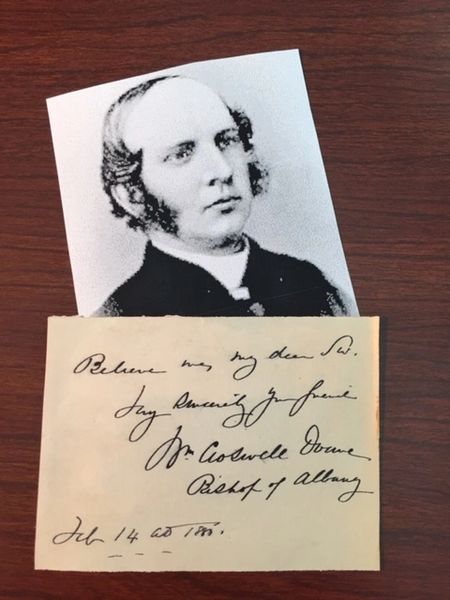 Believe me, my dear Sir.
Very Sincerely Your friend
Wm Croswell Doane
Bishop of Albany
Feb 14